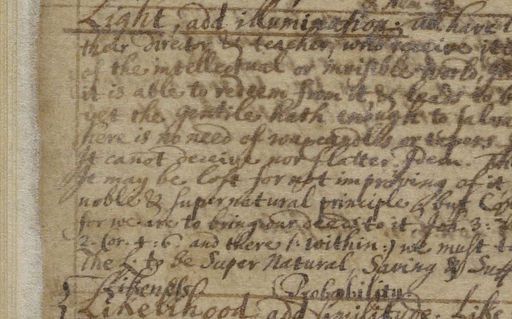 Light, add illumination; all have t
their director & teacher, who receive it
of the intellectual or invisible world,
it is able to redeem from it & leads to
yet the gentile hath enough to salva
here is no need of waxcandles or tapers.
It canot deceive nor flatter. Idem.
It may be lost for not improving of it
noble & supernatural principle but
for we are to bring our deeds to it. Joh: 3:
2. Cor. 4. 6. and there 1. within. we must
the L. to be Super Natural, Saving & Suff
Likeness Probability.
Likelihood add similitude. Like